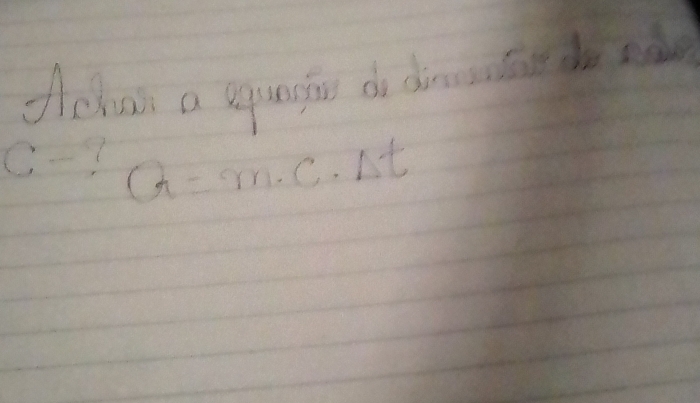 Achar a equação de dimensão do
C - ? Q = m . c . Δt